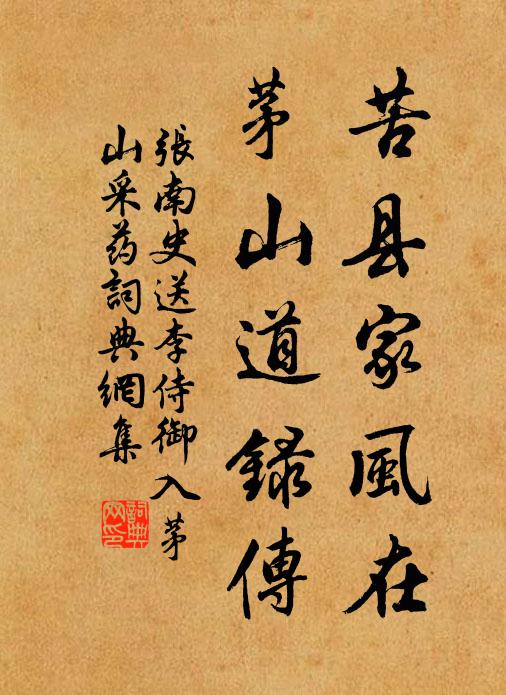 苦县家風在
茅山道録傳
張南史送李侍御入茅
山采药詞典網集
詞典网印